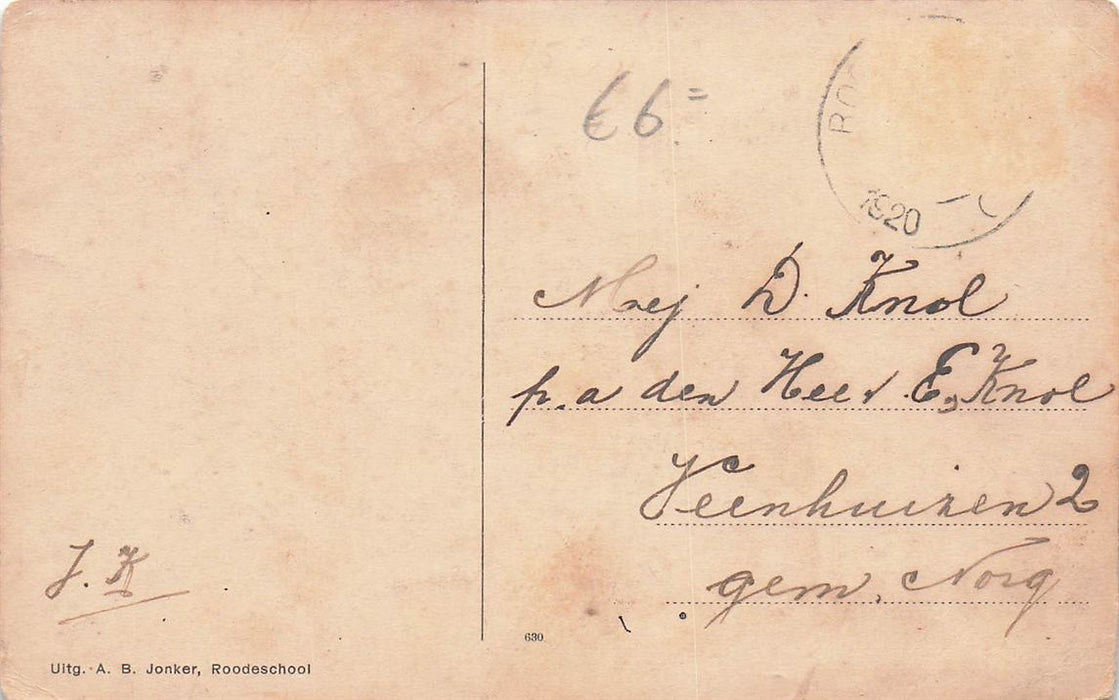 € 6 =
ROO
1920
Mej D. Knol
p.a den Heer E, Knol
Veenhuizen 2
gem. Norg
J. K
630
Uitg. A. B. Jonker, Roodeschool